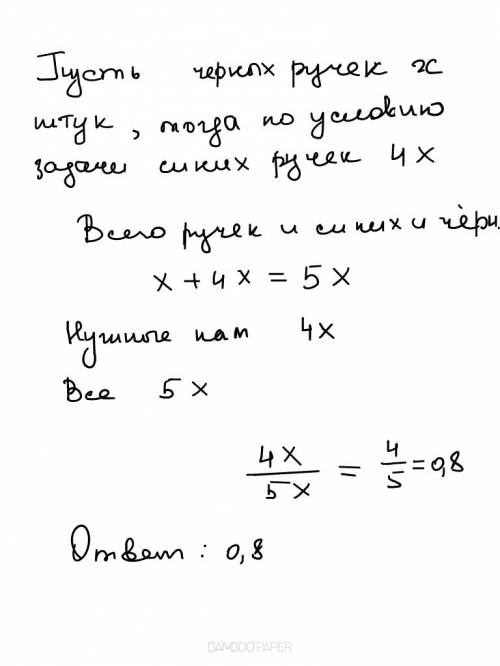 Пусть черных ручек х
штук, тогда по условию
задачи синих ручек 4х
Всего ручек и синих и чёрн.
х + 4х = 5х
Нужные нам 4х
Все 5х
4х/5х = 4/5 = 0,8
Ответ : 0,8
BAMBOOPAPER